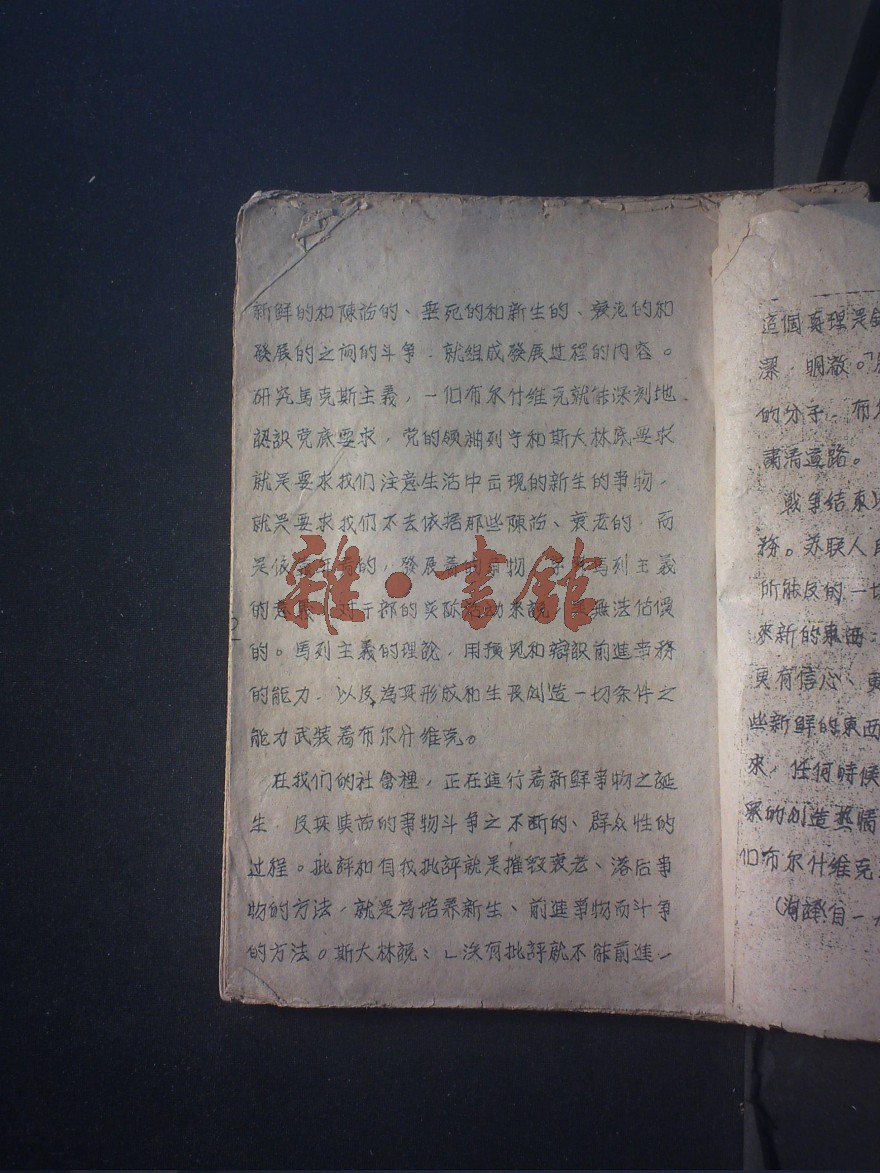 新鮮的和陳旧的、垂死的和新生的、衰老的和
發展的之间的斗争、就組成發展过程的内容。
研究馬克斯主義，一個布尔什维克就能深刻地
認識党底要求，党的领袖列宁和斯大林底要求
就是要求我们注意生活中出現的新生的事物，
就是要求我们不去依据那些陳旧、衰老的，而
是依 的，發展着的事物 馬列主義
的 对于 部的实际活动来說 是無法估價
的。馬列主義的理論，用預見和辯識前進事務
的能力，以及為其形成和生長創造一切条件之
能力武装着布尔什维克。
在我们的社會裡，正在進行着新鮮事物之誕
生，反抗 旧的事物斗争之不断的、群众性的
过程。批評和自我批評就是摧毀衰老、落后事
物的方法，就是為培养新生、前進事物而斗争
的方法。斯大林說：「沒有批評就不能前進—
雜·書館
2
這個真理是
深，明澈。
的分子，布尔
肅清道路。
戰争結束
務。苏联人民
所能及的一切
来新的東西：
更有信心、更
些新鮮的東西
求，任何時候
衆的創造热情
们布尔什维克
（ 譯自一九